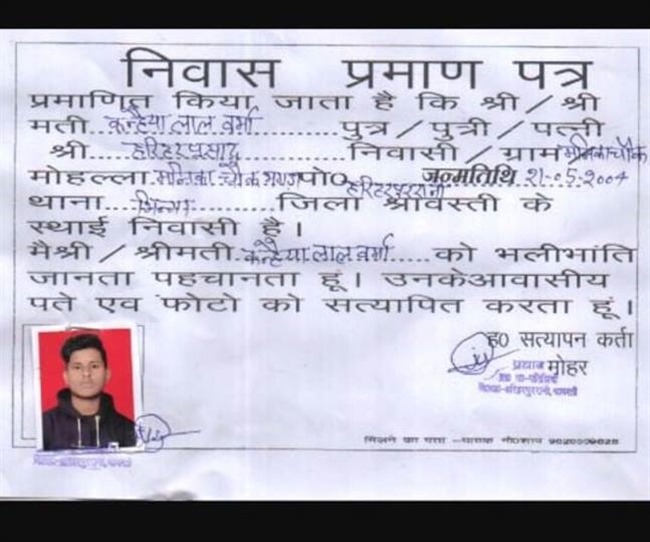 निवास प्रमाण पत्र
प्रमाणित किया जाता है कि श्री/श्री
मती..कन्हैया लाल वर्मा...........पुत्र/पुत्री/पत्नी
श्री....हरिहर प्रसाद............निवासी/ग्राम मनिकाचौक
मोहल्ला.मनिका चौक....पो0 हरिहरपुररानी जन्मतिथि 21-05-2004
थाना....भिनगा........जिला श्रावस्ती के
स्थाई निवासी है।
मैश्री/श्रीमती.कन्हैया लाल वर्मा.....को भलीभांति
जानता पहचानता हूं। उनकेआवासीय
पते एव फोटो को सत्यापित करता हूं।
ह0 सत्यापन कर्ता
मोहर
प्रधान